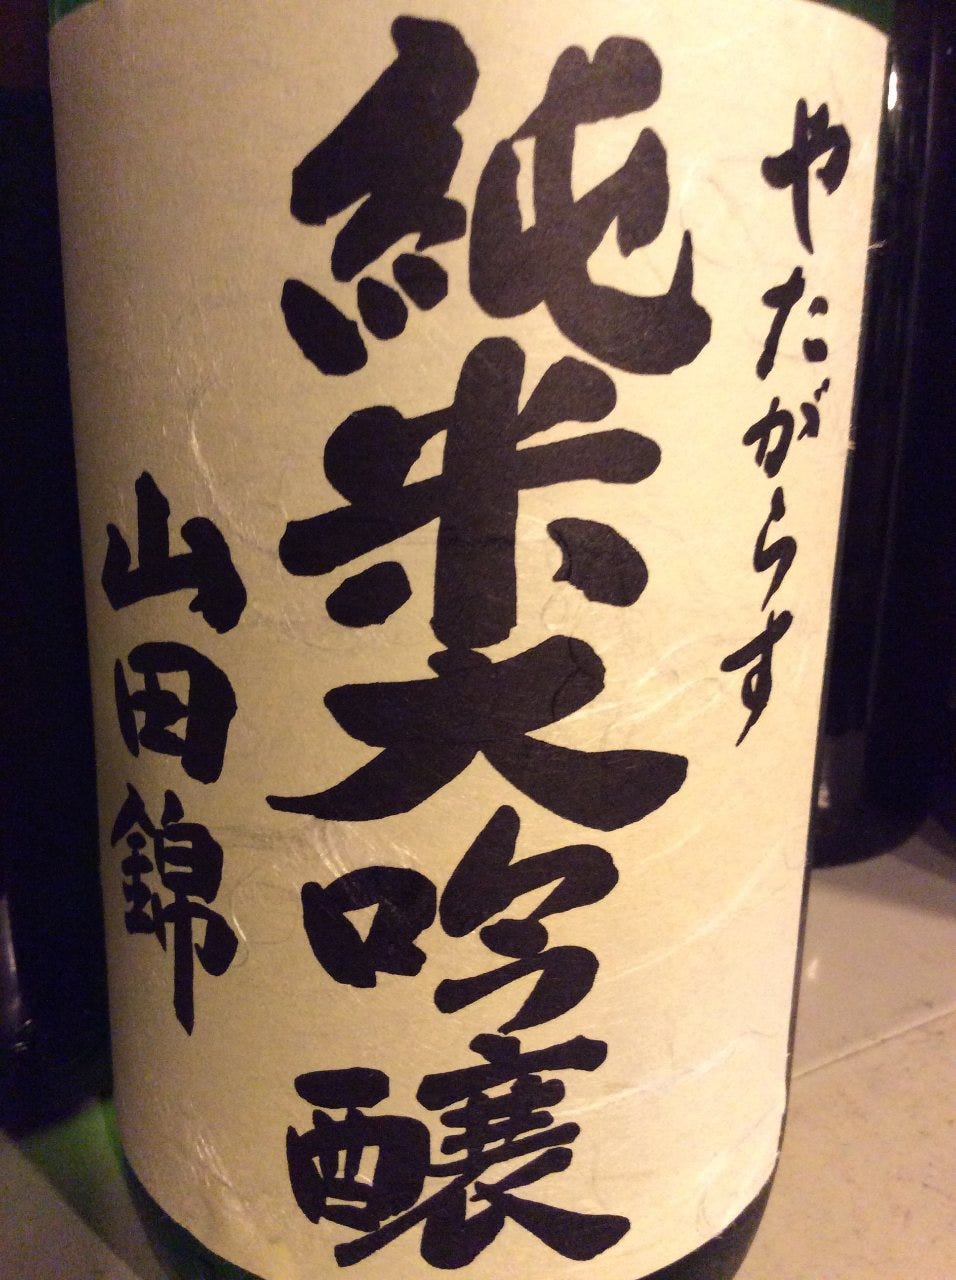 やたがらす
純米大吟醸
山田錦